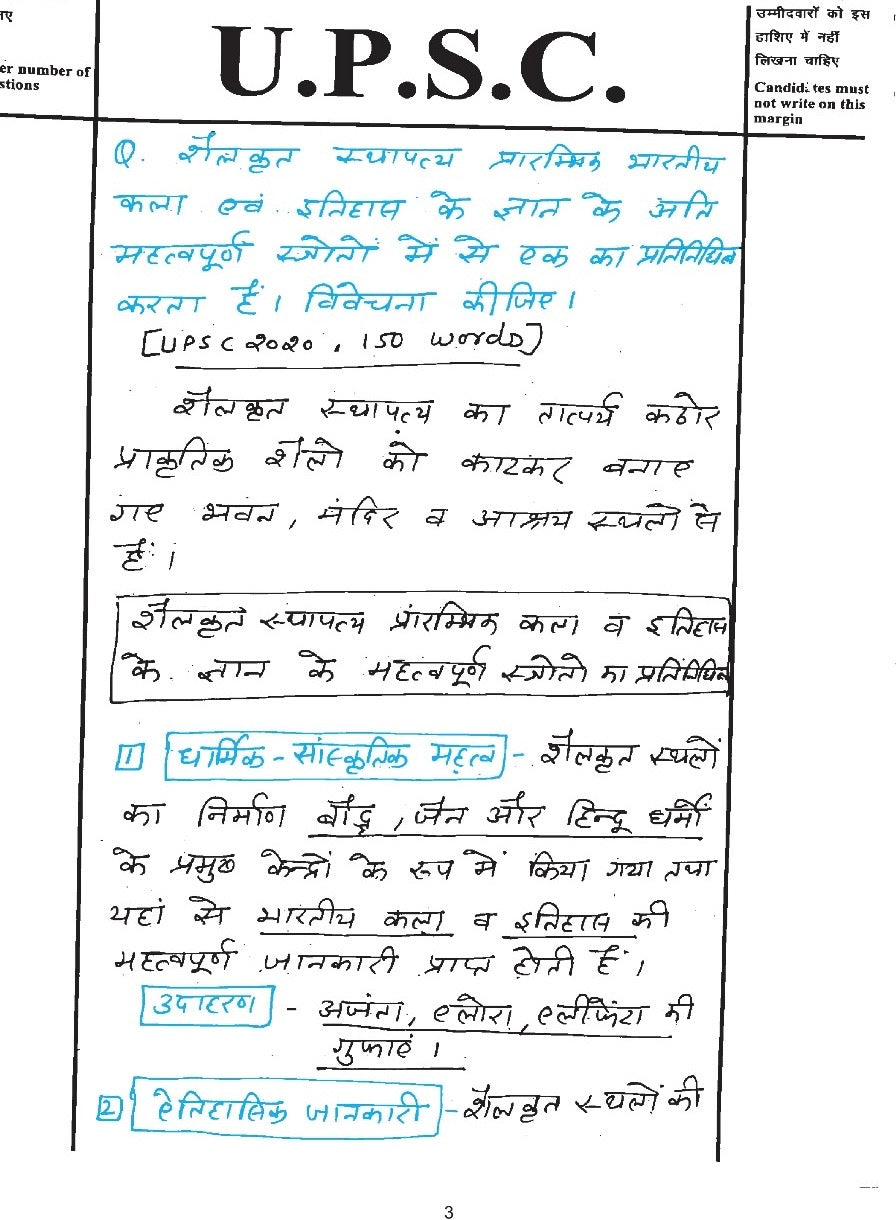 नए
er number of
stions
U.P.S.C.
उम्मीदवारों को इस
हाशिए में नहीं
लिखना चाहिए
Candidates must
not write on this
margin
Q. शैलकृत स्थापत्य प्रारम्भिक भारतीय
कला एवं इतिहास के ज्ञान के अति
महत्वपूर्ण स्त्रोतों में से एक का प्रतिनिधित्व
करता है। विवेचना कीजिए।
[UPSC 2020, 150 words]
शैलकृत स्थापत्य का तात्पर्य कठोर
प्राकृतिक शैलो को काटकर बनाए
गए भवन, मंदिर व आश्रय स्थलो से
हैं।
शैलकृत स्थापत्य प्रारम्भिक कला व इतिहास
के ज्ञान के महत्वपूर्ण स्त्रोतो का प्रतिनिधित्व
1 धार्मिक - सांस्कृतिक महत्व - शैलकृत स्थलों
का निर्माण बौद्ध, जैन और हिन्दू धर्मों
के प्रमुख केन्द्रों के रूप में किया गया तथा
यहां से भारतीय कला व इतिहास की
महत्वपूर्ण जानकारी प्राप्त होती हैं।
उदाहरण - अजंता, एलोरा, एलीफेंटा की
गुफाएं।
2 ऐतिहासिक जानकारी - शैलकृत स्थलों की
3